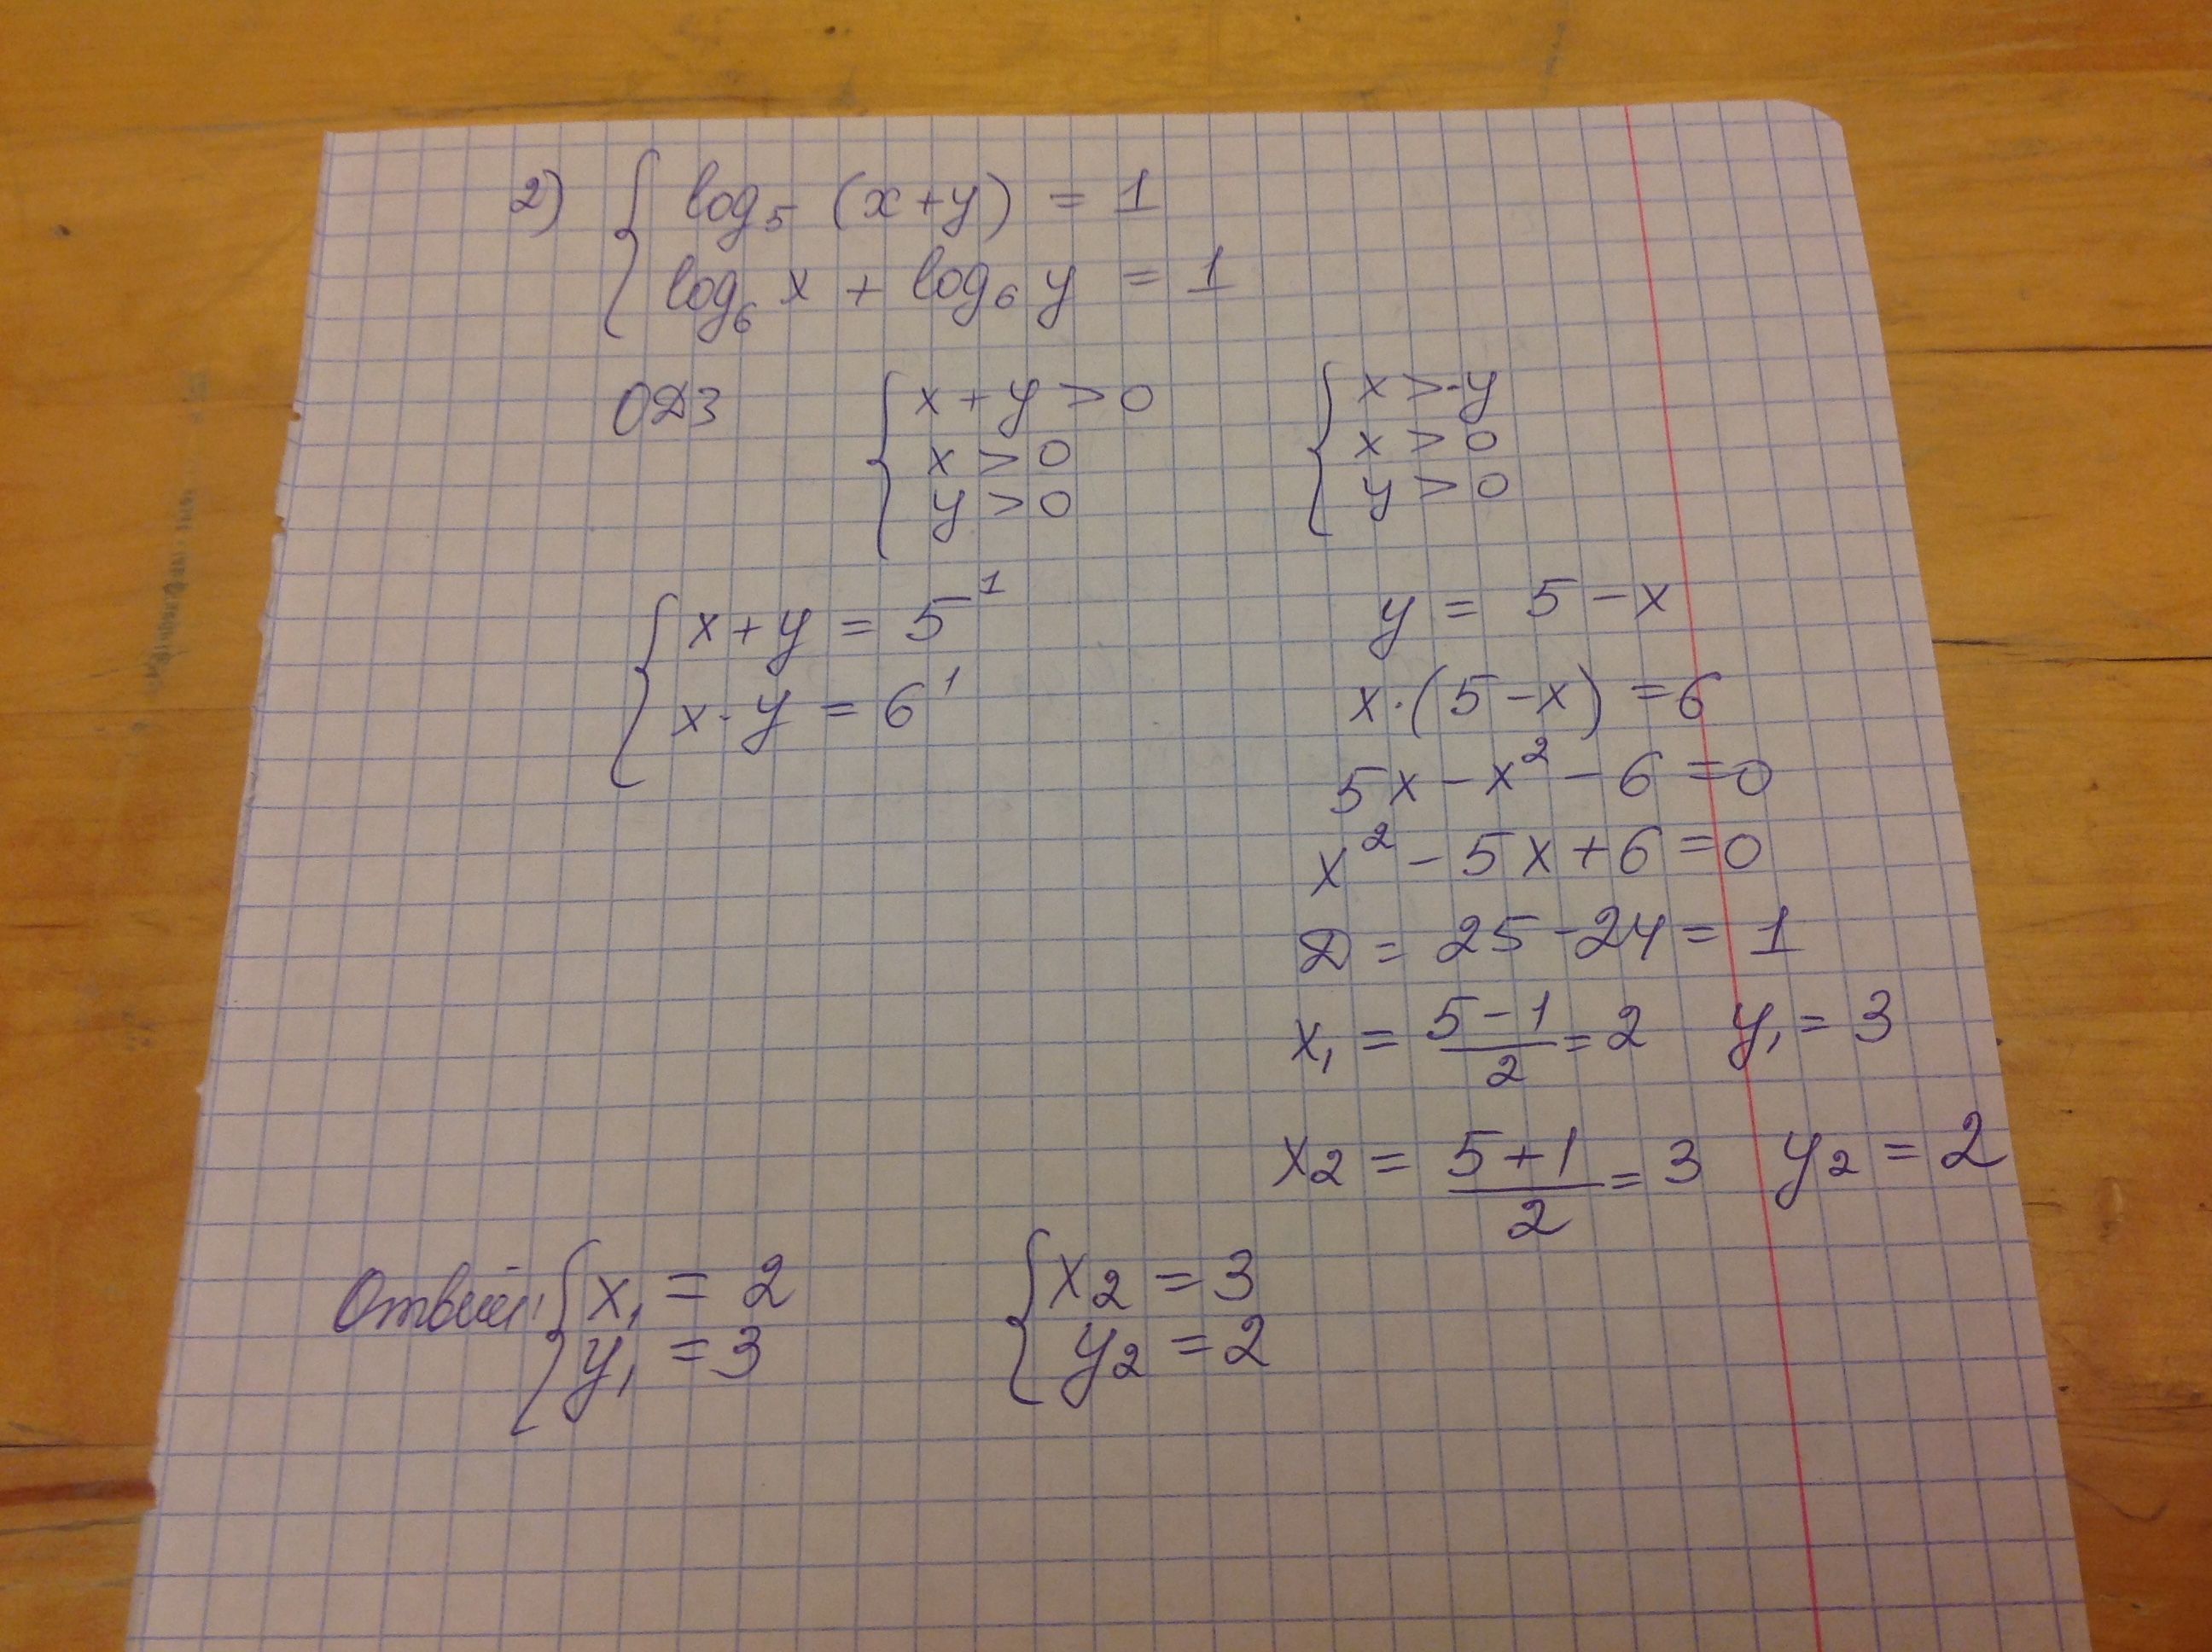 2) { log₅ (x+y) = 1
log₆ x + log₆ y = 1
ОДЗ { x+y>0 { x>-y
x>0 x>0
y>0 y>0
{ x+y = 5¹ y = 5-x
x·y = 6¹ x·(5-x) =6
5x-x²-6=0
x²-5x+6=0
D = 25-24= 1
x₁ = (5-1)/2 = 2 y₁ = 3
x₂ = (5+1)/2 = 3 y₂ = 2
Ответ: { x₁ = 2 { x₂ = 3
y₁ = 3 y₂ = 2